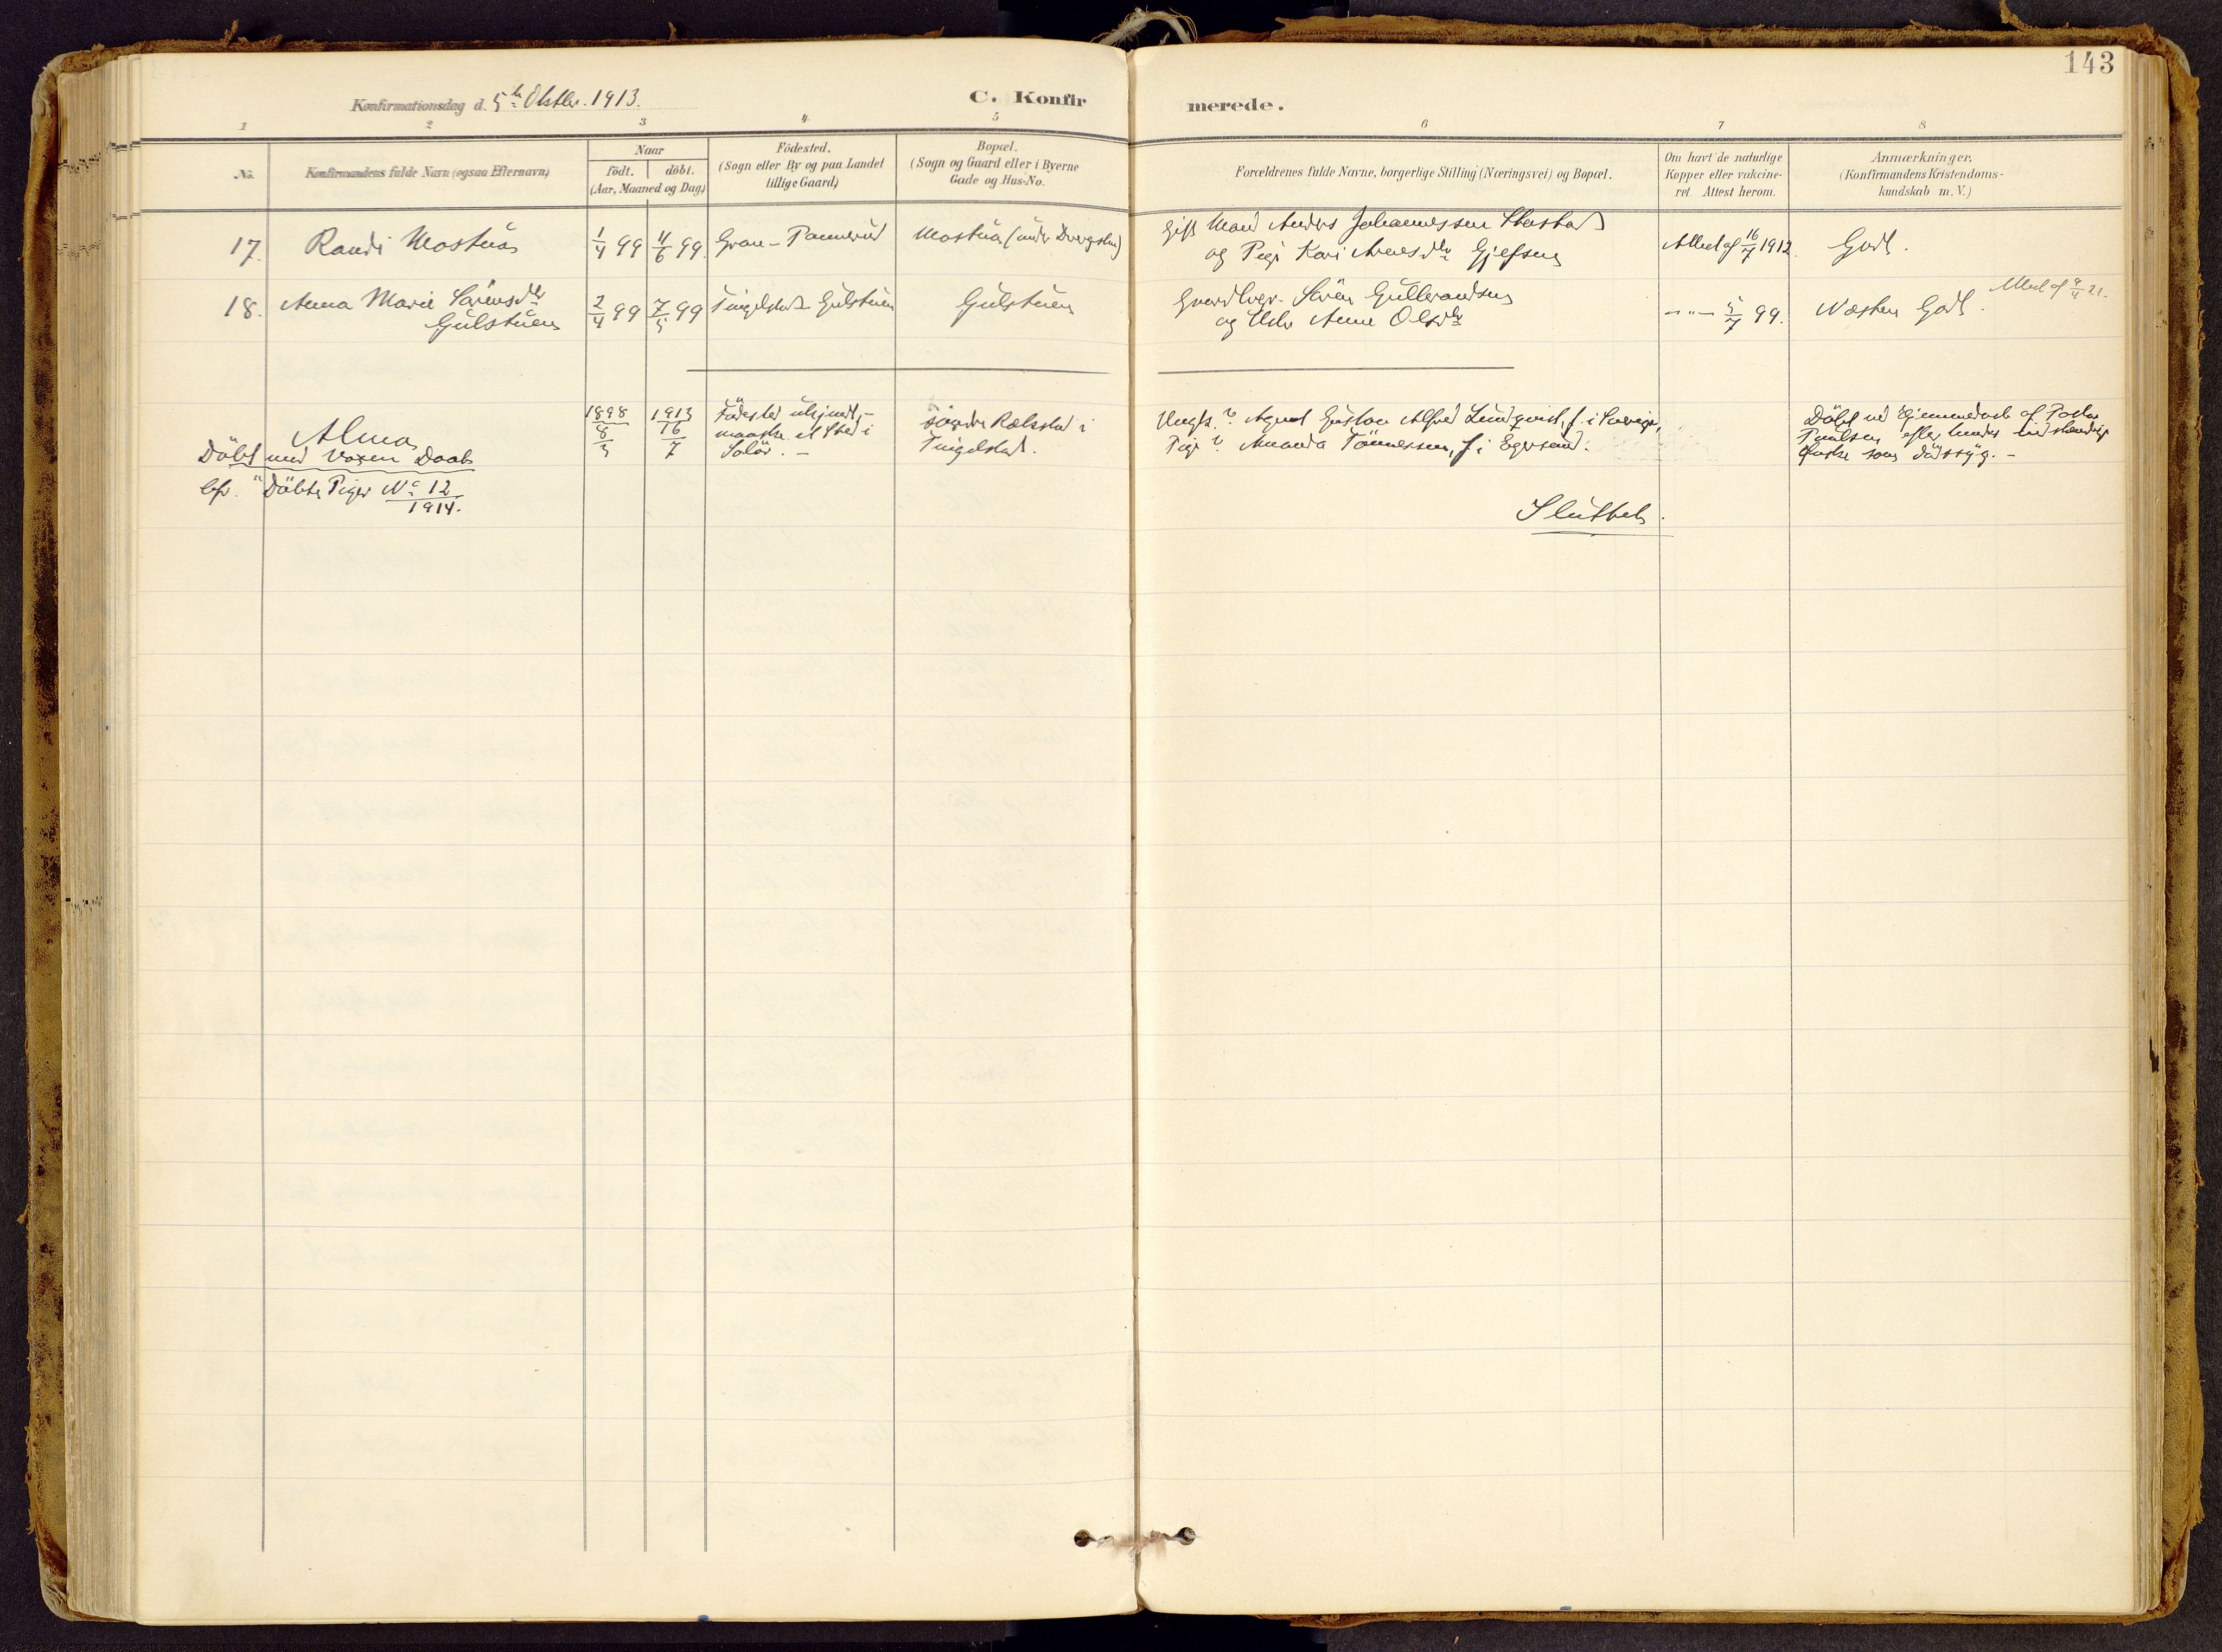 143
Konfirmationsdag d. 5te Oktbr. 1913.
C. Konfirmerede.
1 2 3 4 5 6 7 8
No.
Konfirmandens fulde Navn (ogsaa Efternavn)
Naar
födt. döbt.
(Aar, Maaned og Dag)
Födested.
(Sogn eller By og paa Landet
tillige Gaard)
Bopæl.
(Sogn og Gaard eller i Byerne
Gade og Hus-No.
Forældrenes fulde Navne, borgerlige Stilling (Næringsvei) og Bopæl.
Om havt de naturlige
Kopper eller vakcine-
ret. Attest herom.
Anmærkninger,
(Konfirmandens Kristendoms-
kundskab m. V.)
17. Randi Mostuen 1/4 99 11/6 99. Gran - Mostuen (under Dvergsten)
Gift Mand Anders Johannessen
og Pige Kari Gjefsen
Attest af 16/7 1912. Godt.
18. Anna Marie Sørensdtr
Gulstuen
2/4 99 7/5 99 Tingelstad - Gulstuen Gulstuen
Søren Gulbrandsen
og Anne Olsdtr
— " — 5/7 99. Næsten Godt. Attest af 9/4 21.
Alma
Döbt med Voxen Daab
cfr. "Döbte Piger No 12
1914.
1898
8/3
1913
16/7
Födested ukjendt, -
maaske et Sted i
Solör. -
söndre Rækstad i
Tingelstad.
Ungk. ? Agust Gustav Alfred Lindqvist, f. i Sverige,
Pige ? Amanda Tönnessen, f. i Egersund.
Döbt ved Hjemmedaab af Pastor
Paulsen efter hendes indstændige
Önske som dödssyg. -
Sluttet.